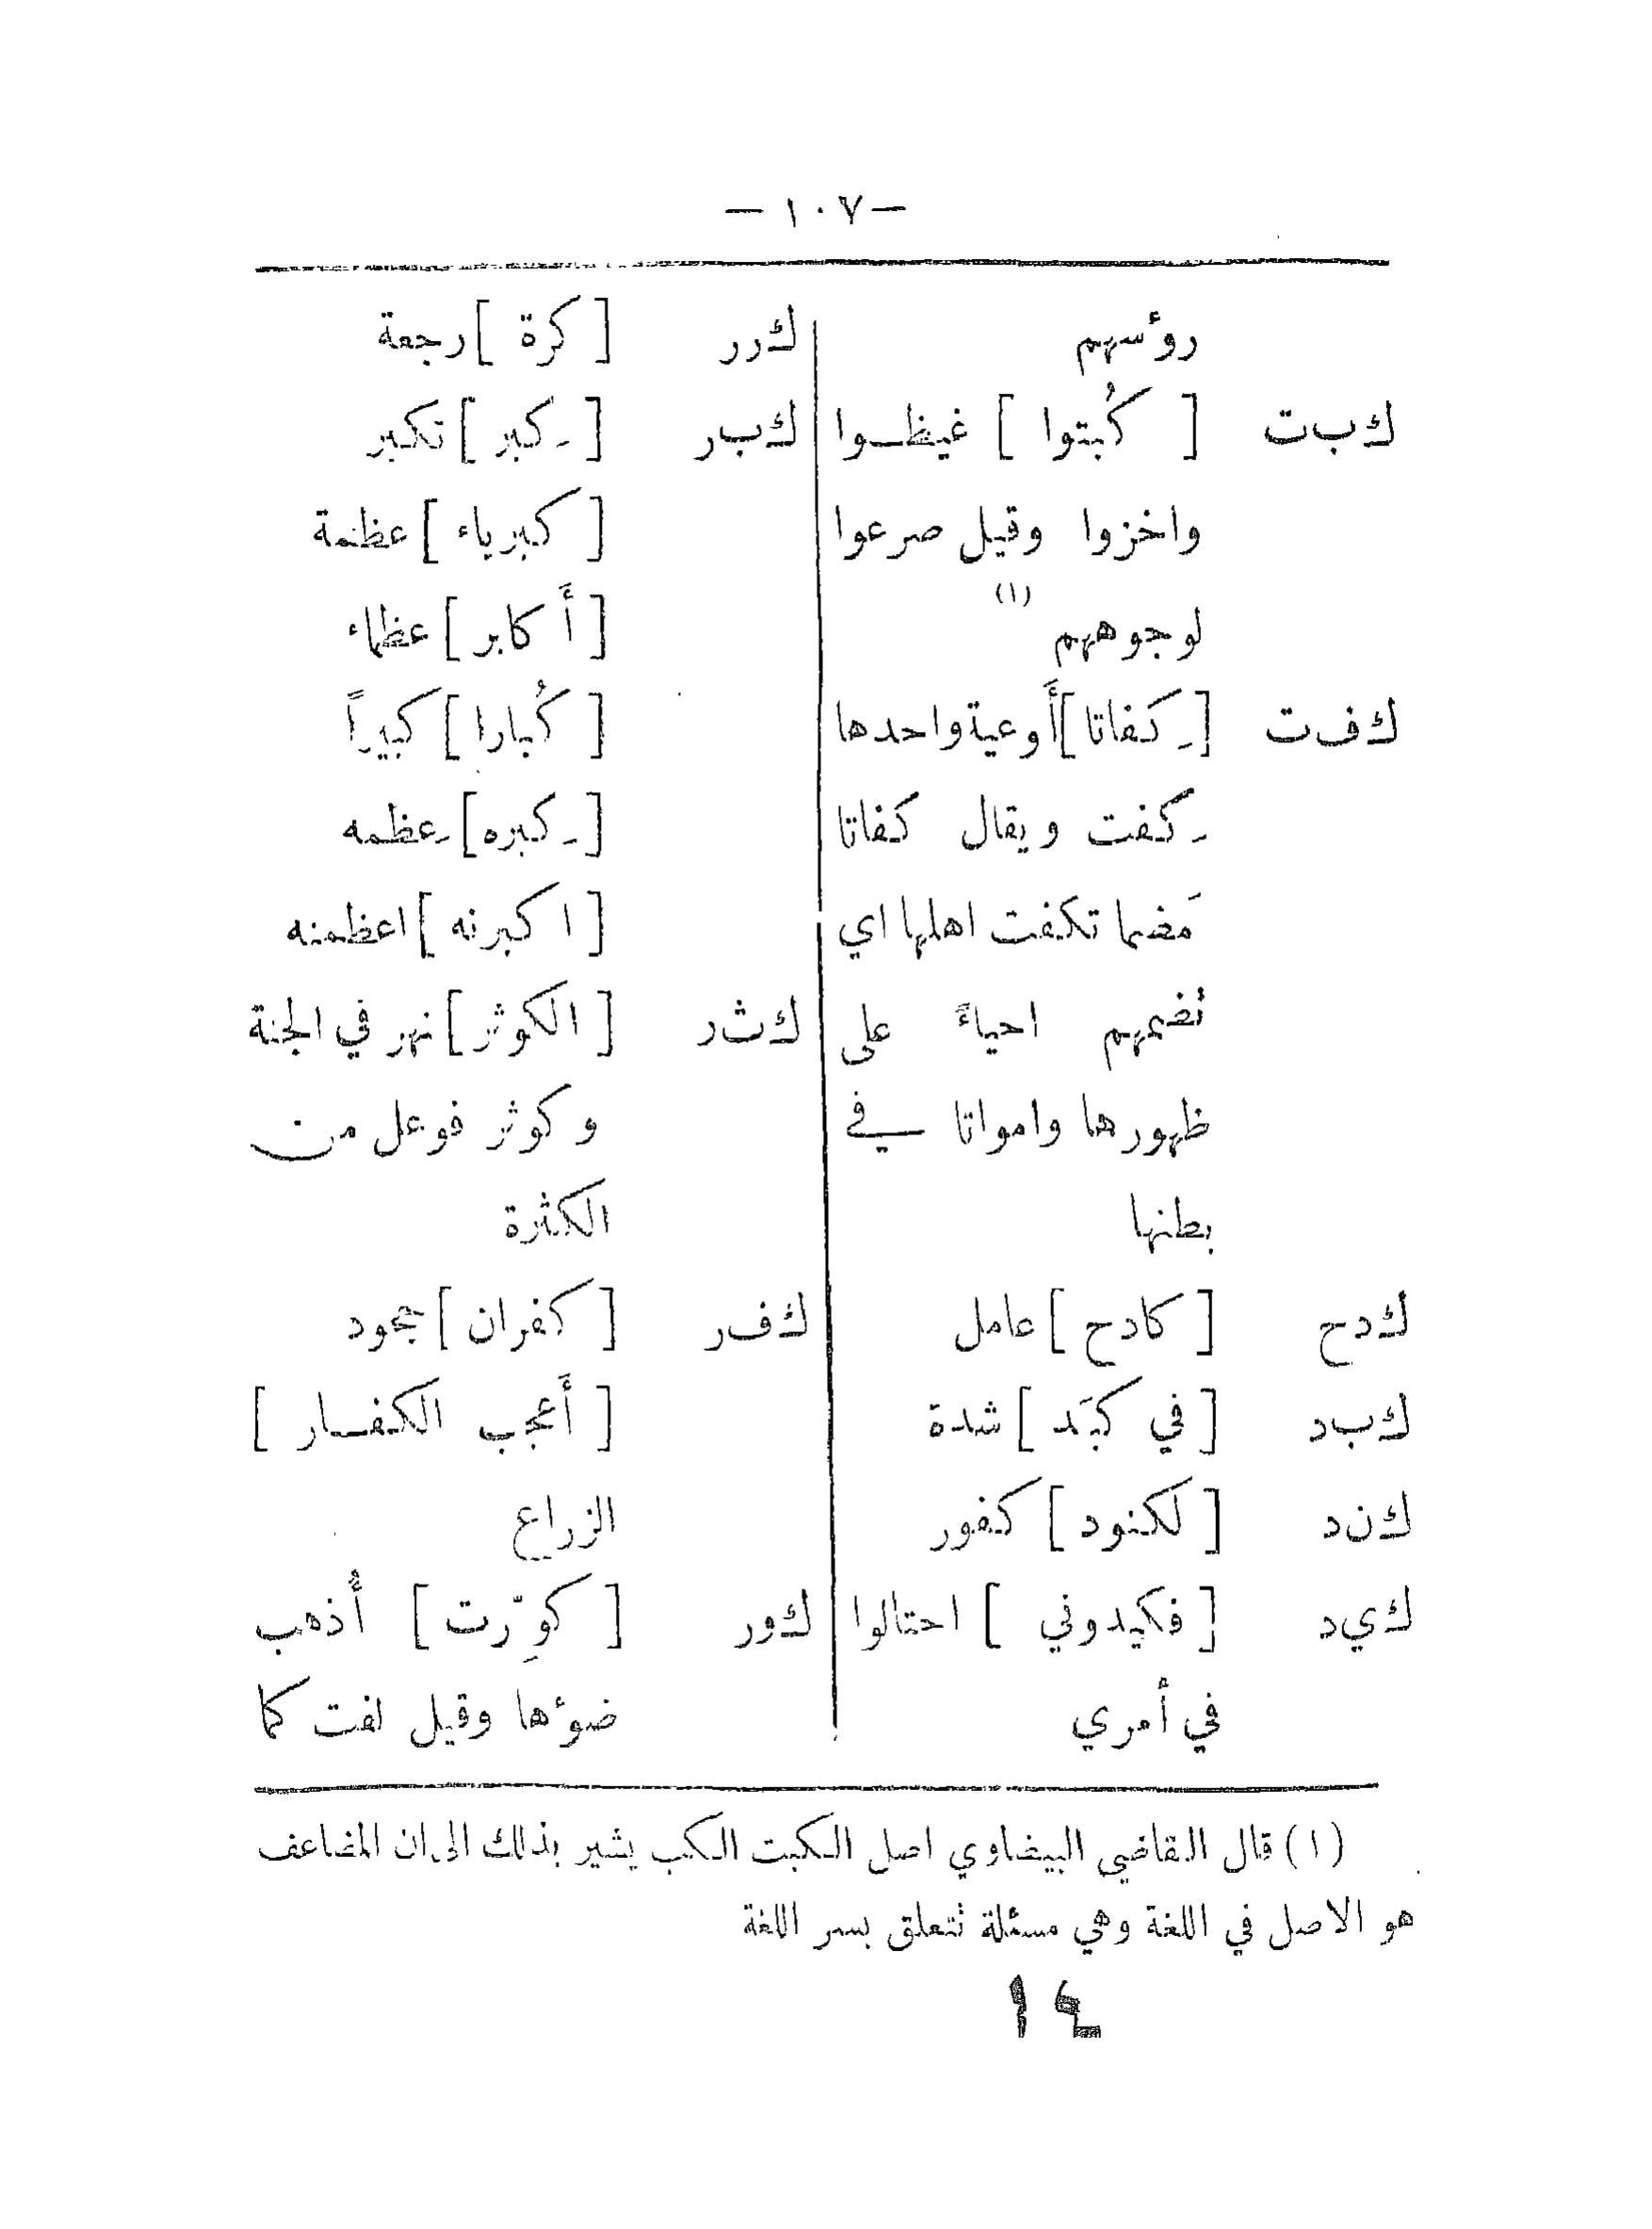 — ١٠٧ —
رؤسهم
ك‍ ب‍ ت [ كُبتوا ] غيظوا
واخزوا وقيل صرعوا
لوجوههم (١)
ك‍ ف‍ ت [ كِفاتا ] أَوعية واحدها
كِفت ويقال كفاتا
مَضما تكفت اهلها اي
تضمهم احياءً على
ظهورها وامواتا في
بطنها
ك‍ د ح [ كادح ] عامل
ك‍ ب‍ د [ في كَبَد ] شدة
ك‍ ن‍ د [ لكنود ] كفور
ك‍ ي‍ د [ فكيدوني ] احتالوا
في أمري
ك‍ ر ر [ كرة ] رجعة
ك‍ ب‍ ر [ كِبر ] تكبر
[ كبرياء ] عظمة
[ أَكابر ] عظماء
[ كُبارا ] كبيراً
[ كِبره ] عِظمه
[ اكبرنه ] اعظمنه
ك‍ ث‍ ر [ الكوثر ] نهر في الجنة
وكوثر فوعل من
الكثرة
ك‍ ف‍ ر [ كفران ] جحود
[ أَعجب الكفار ]
الزراع
ك‍ و ر [ كوِّرت ] أُذهب
ضوءها وقيل لفت كما
(١) قال القاضي البيضاوي اصل الكبت الكب يشير بذلك الى ان المضاعف
هو الاصل في اللغة وهي مسئلة تتعلق بسر اللغة
١٤